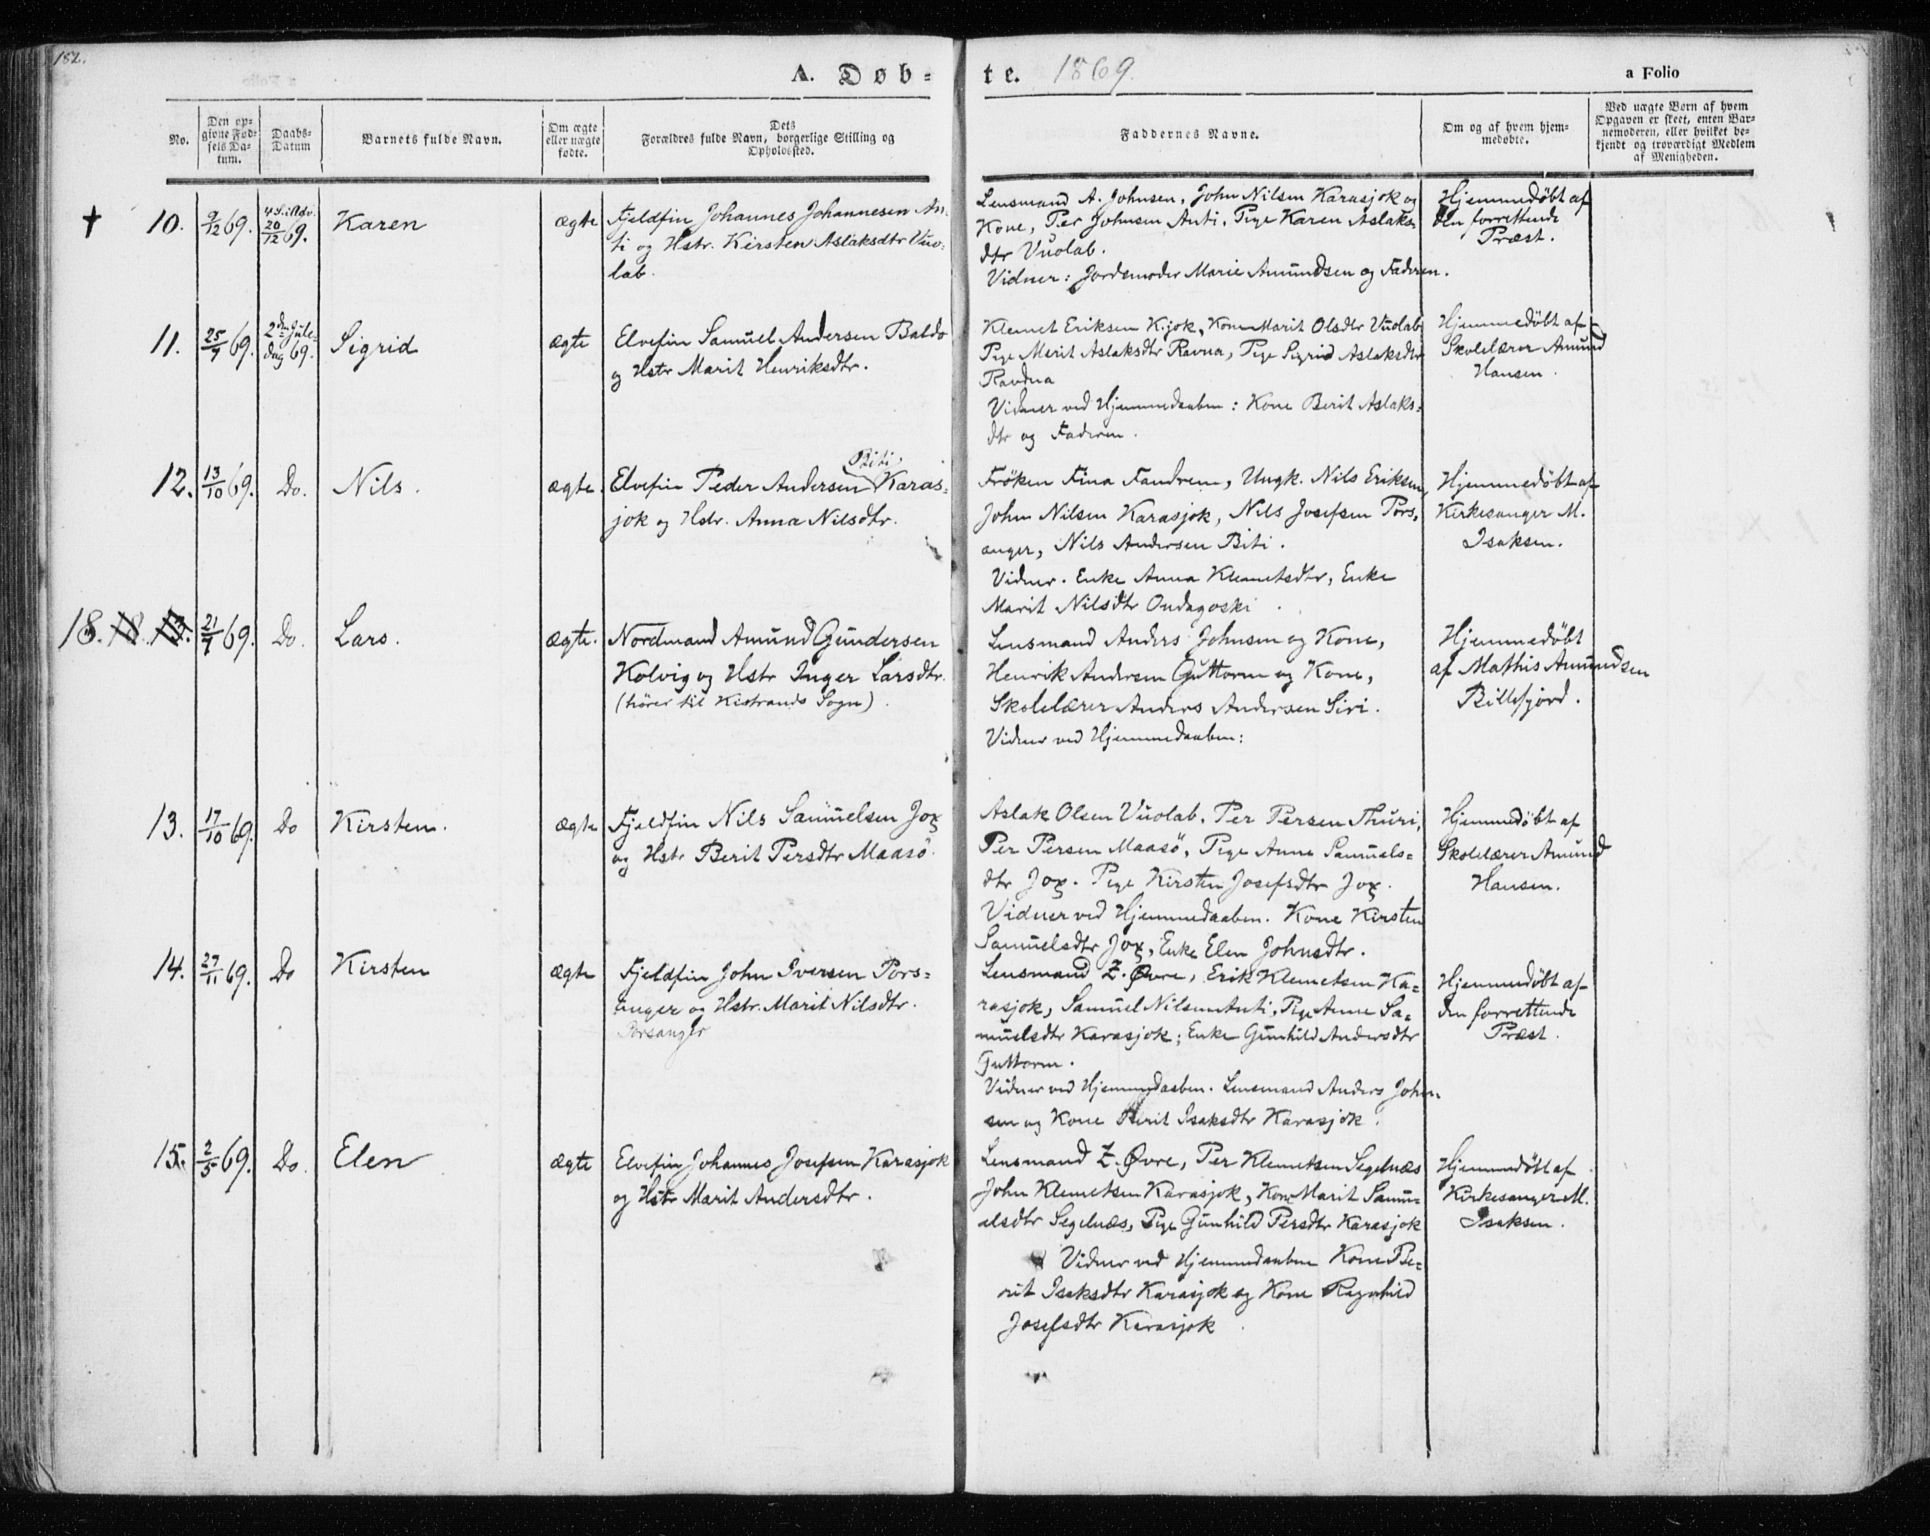 152.
A. Døb-te. 1869.
a Folio
No.
Den opgivne Fødsels Datum.
Daabs-Datum
Barnets fulde Navn.
Om ægte eller uægte fødte.
Dets Forældres fulde Navn, borgerlige Stilling og Opholdssted.
Faddernes Navne.
Om og af hvem hjemmedøbte.
Ved uægte Børn af hvem Opgaven er skeet, enten Barnemoderen, eller hvilket bekjendt og troværdigt Medlem af Menigheden.
† 10. 9/12 69. 4 S. i Adv. 20/12 69. Karen ægte
Fjeldfin Johannes Johannesen An-
ti og Hstr. Kirsten Aslaksdtr Vuo-
lab.
Lensmand A. Johnsen, John Nilsen Karasjok og
Kone, Per Johnsen Anti, Pige Karen Aslaks-
dtr Vuolab.
Vidner: Jordemoder Marie Amundsen og Faderen.
Hjemmedøbt af
den forrettende
Præst.
11. 25/9 69. 2den Jule-
dag 69. Sigrid ægte
Elvefin Samuel Andersen Baldo
og Hstr Marit Henriksdtr.
Klemet Eriksen Kjok, Kone Marit Olsdtr Vuolab,
Pige Merit Aslaksdtr Ravna, Pige Sigrid Aslaksdtr
Ravdna
Vidner ved Hjemmedaaben: Kone Berit Aslaks-
dtr og Faderen.
Hjemmedøbt af
Skolelærer Amund
Hansen.
12. 13/10 69. Do. Nils. ægte.
Biti,
Elvefin Peder Andersen Karas-
jok og Hstr. Anna Nilsdtr.
Frøken Fina Fandrem, Ungk. Nils Eriksen,
John Nilsen Karasjok, Nils Josefsen Pors-
anger, Nils Andersen Biti.
Vidner. Enke Anna Klemetsdtr, Enke
Marit Nilsdtr Ondagoski.
Hjemmedøbt af
Kirkesanger M.
Isaksen.
18. 21/9 69. Do. Lars. ægte.
Nordmand Amund Gundersen
Kolvig og Hstr Inger Larsdtr.
(hører til Kistrands Sogn).
Lensmand Anders Johnsen og Kone,
Henrik Andersen Guttorm og Kone,
Skolelærer Anders Andersen Siri.
Vidner ved Hjemmedaaben:
Hjemmedøbt
af Mathis Amundsen
Billefjord.
13. 17/10 69. Do Kirsten. ægte
Fjeldfin Nils Samuelsen Jox
og Hstr Berit Persdtr Maasø.
Aslak Olsen Vuolab, Per Persen Thuri,
Per Persen Maasö, Pige Anne Samuels-
dtr Jox. Pige Kirsten Josefsdtr Jox.
Vidner ved Hjemmedaaben. Kone Kirsten
Samuelsdtr Jox, Enke Elen Johnsdtr.
Hjemmedøbt af
Skolelærer Amund
Hansen.
14. 27/11 69. Do Kirsten ægte
Fjeldfin John Iversen Pors-
anger og Hstr. Marit Nilsdtr.
Porsanger
Lensmand Z. Øvre, Erik Klemetsen Ka-
rasjok, Samuel Nilsen Anti, Pige Anne Sa-
muelsdtr Karasjok; Enke Gunhild Andersdtr
Guttorm.
Vidner ved Hjemmedaaben. Lensmand Anders John-
sen og Kone Berit Isaksdtr Karasjok.
Hjemmedøbt af
den forrettende
Præst.
15. 2/5 69. Do. Elen ægte
Elvefin Johannes Josefsen Karasjok
og Hstr Marit Andersdtr.
Lensmand Z. Øvre, Per Klemetsen Segelnæs
John Klemetsen Karasjok, Kone Marit Samu-
elsdtr Segelnæs, Pige Gunhild Persdtr Karasjok
Vidner ved Hjemmedaaben Kone Be-
rit Isaksdtr Karasjok og Kone Ragnhild
Josefsdtr Karasjok.
Hjemmedøbt af
Kirkesanger M.
Isaksen.